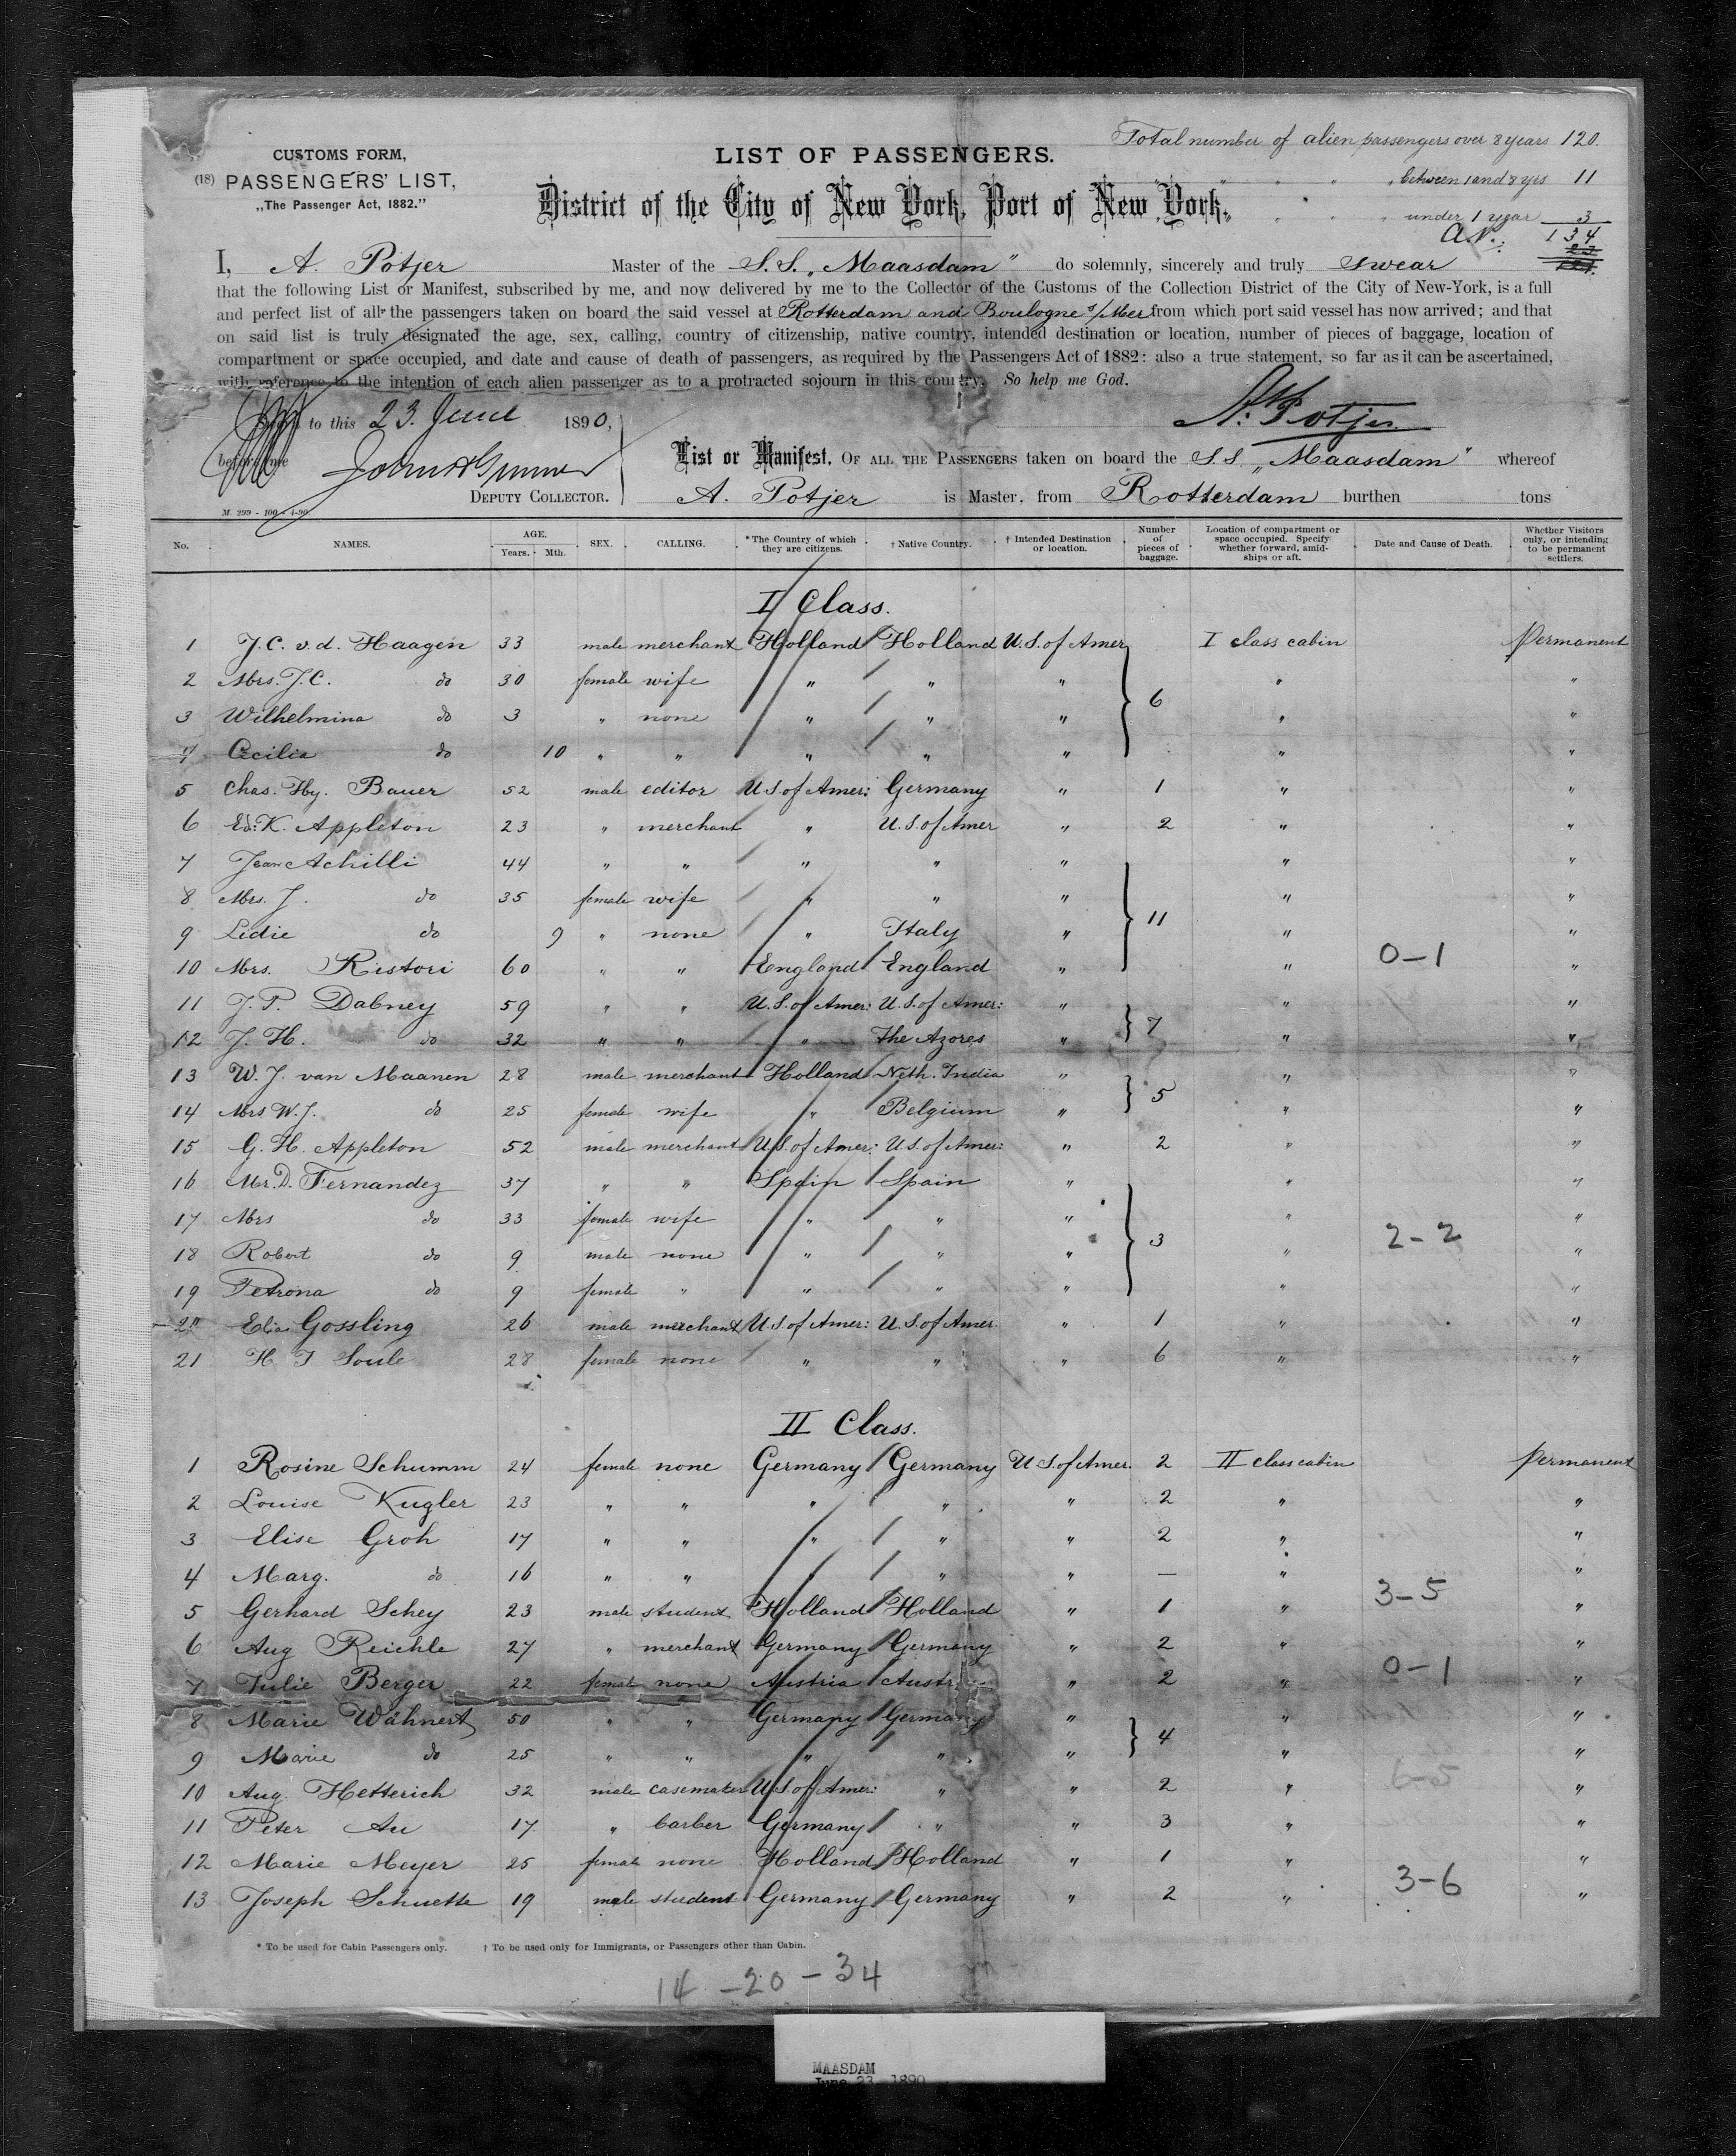 Total number of alien passengers over 8 years 120.
" " " " between 1 and 8 yrs 11
" " " " under 1 year 3
A.N.: 134
CUSTOMS FORM,
(18) PASSENGERS' LIST,
„The Passenger Act, 1882."
LIST OF PASSENGERS.
District of the City of New York, Port of New York.
I, A. Potjer Master of the S.S. „Maasdam" do solemnly, sincerely and truly swear
that the following List or Manifest, subscribed by me, and now delivered by me to the Collector of the Customs of the Collection District of the City of New-York, is a full
and perfect list of all the passengers taken on board the said vessel at Rotterdam and Boulogne s/Mer from which port said vessel has now arrived; and that
on said list is truly designated the age, sex, calling, country of citizenship, native country, intended destination or location, number of pieces of baggage, location of
compartment or space occupied, and date and cause of death of passengers, as required by the Passengers Act of 1882: also a true statement, so far as it can be ascertained,
with reference to the intention of each alien passenger as to a protracted sojourn in this country. So help me God.
to this 23. June 1890,
A. Potjer
before me
List or Manifest, OF ALL THE PASSENGERS taken on board the S.S. „Maasdam" whereof
DEPUTY COLLECTOR.
A. Potjer is Master, from Rotterdam burthen tons
M. 299 - 100 - 4-90.
No. NAMES. AGE. Years. Mth. SEX. CALLING. *The Country of which they are citizens. † Native Country. † Intended Destination or location. Number of pieces of baggage. Location of compartment or space occupied. Specify whether forward, amidships or aft. Date and Cause of Death. Whether Visitors only, or intending to be permanent settlers.
I Class.
1 J.C. v.d. Haagen 33 male merchant Holland Holland U.S. of Amer I class cabin Permanent
2 Mrs. J.C. do 30 female wife " " " 6 " "
3 Wilhelmina do 3 " none " " " " "
4 Cecilia do 10 " " " " " " "
5 Chas. Hy. Bauer 52 male editor U.S. of Amer: Germany " 1 " "
6 Ed: K. Appleton 23 " merchant " U.S. of Amer " 2 " "
7 Jean Achilli 44 " " " " " " "
8 Mrs. J. do 35 female wife " " " " "
9 Lidie do 9 " none " Italy " 11 " "
10 Mrs. Ristori 60 " " England England " " 0-1 "
11 J. P. Dabney 59 " " U.S. of Amer: U.S. of Amer: " " "
12 J. H. do 32 " " " The Azores " 7 " "
13 W. J. van Maanen 28 male merchant Holland Neth. India " " "
14 Mrs W. J. do 25 female wife " Belgium " 5 " "
15 G. H. Appleton 52 male merchant U.S. of Amer: U.S. of Amer: " 2 " "
16 Mr. D. Fernandez 37 " " Spain Spain " " "
17 Mrs do 33 female wife " " " " "
18 Robert do 9 male none " " " 3 " 2-2 "
19 Petrona do 9 female " " " " " "
20 Elia Gossling 26 male merchant U.S. of Amer: U.S. of Amer. " 1 " "
21 H. J Soule 28 female none " " " 6 " "
II Class.
1 Rosine Schumm 24 female none Germany Germany U.S. of Amer. 2 II class cabin Permanent
2 Louise Kugler 23 " " " " " 2 " "
3 Elise Groh 17 " " " " " 2 " "
4 Marg. do 16 " " " " " — " "
5 Gerhard Schey 23 male student Holland Holland " 1 " 3-5 "
6 Aug Reichle 27 " merchant Germany Germany " 2 " "
7 Julie Berger 22 female none Austria Austria " 2 " 0-1 "
8 Marie Wähnert 50 " " Germany Germany " " "
9 Marie do 25 " " " " " 4 " "
10 Aug. Hetterich 32 male casemaker U.S. of Amer: " " 2 " 6-5 "
11 Peter Au 17 " barber Germany " " 3 " "
12 Marie Meyer 25 female none Holland Holland " 1 " "
13 Joseph Schuette 19 male student Germany Germany " 2 " 3-6 "
* To be used for Cabin Passengers only. † To be used only for Immigrants, or Passengers other than Cabin.
14 - 20 - 34
MAASDAM
June 23 1890